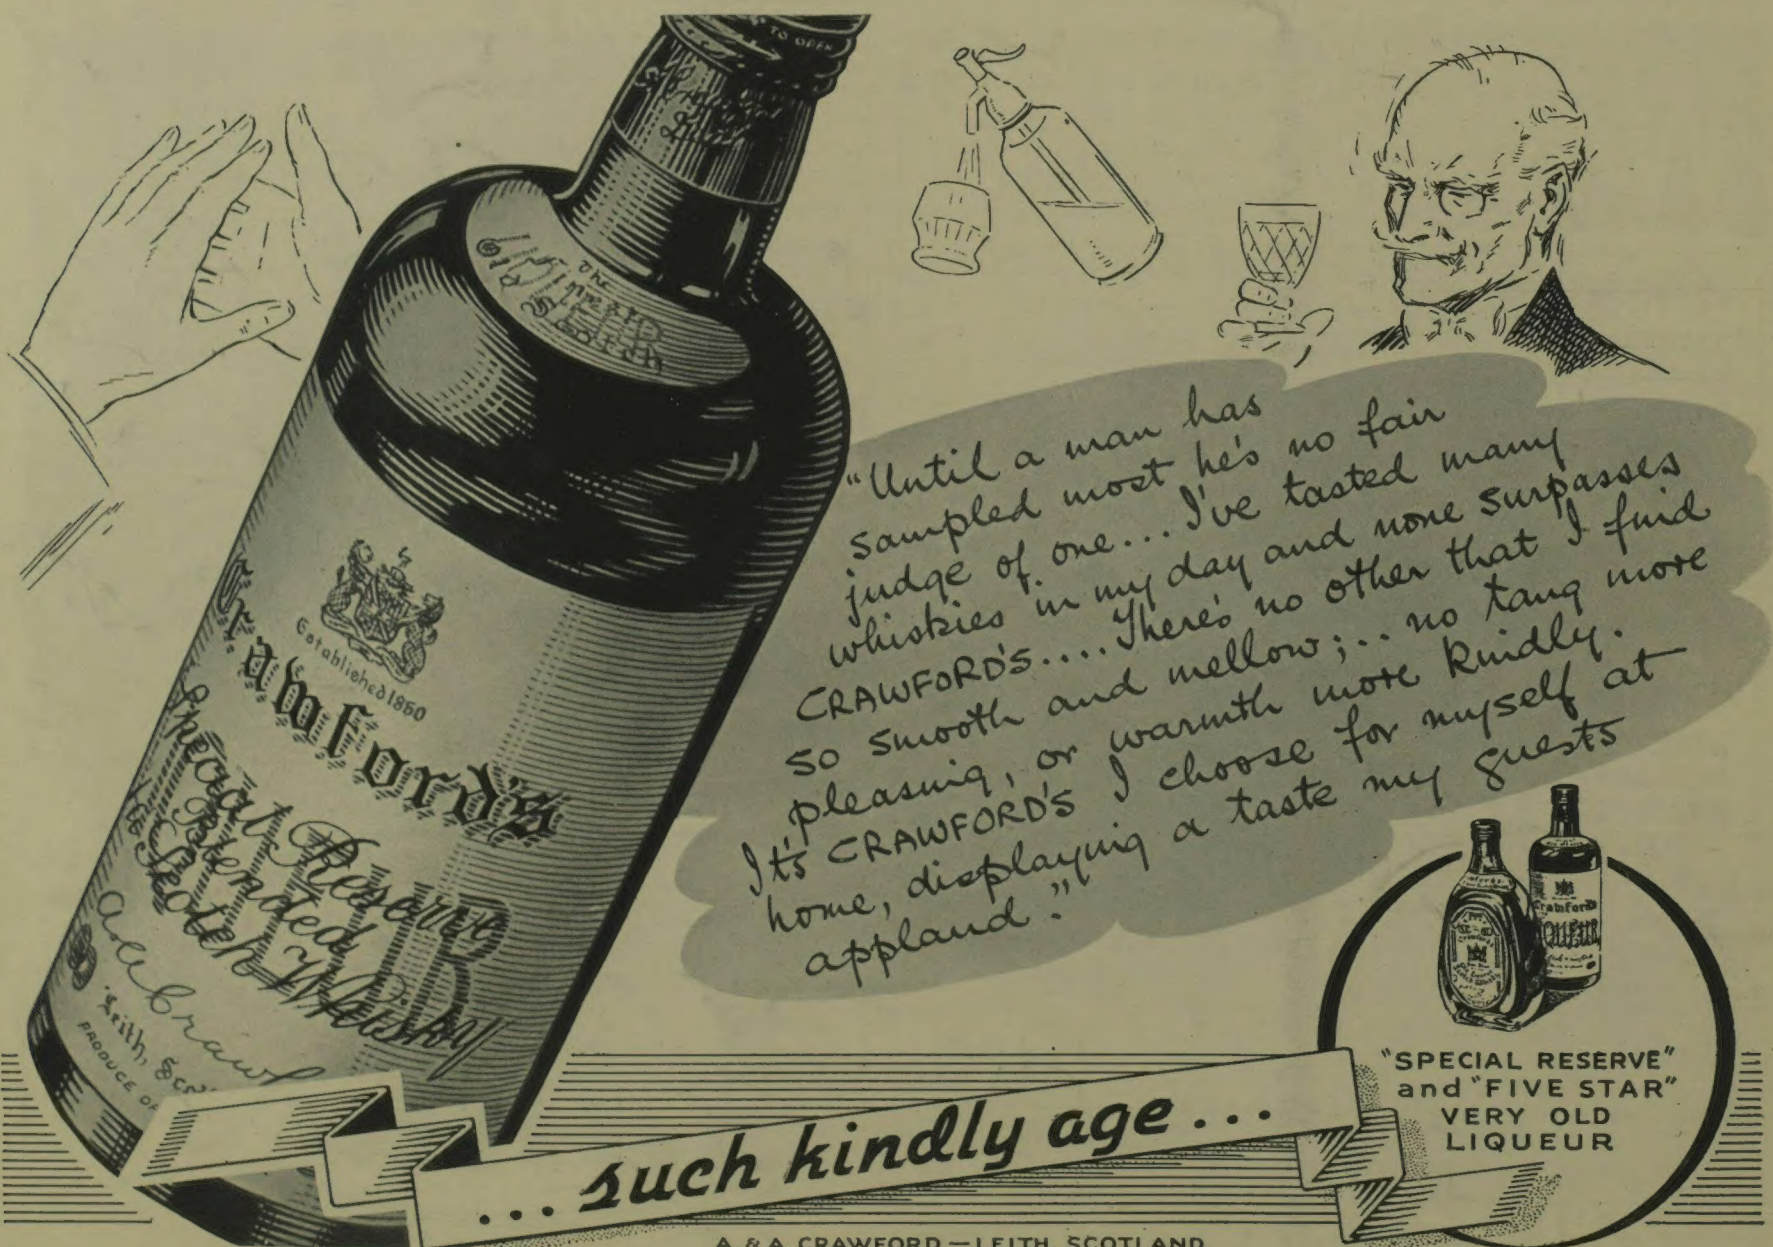 TO OPEN
The
Finest
Scotch
Established 1860
Crawford's
Special Reserve
Blended
Scotch Whisky
A & A Crawf
Leith, Sco
PRODUCE OF
"Until a man has
sampled most he's no fair
judge of one... I've tasted many
whiskies in my day and none surpasses
CRAWFORD'S.... There's no other that I find
so smooth and mellow;... no tang more
pleasing, or warmth more kindly.
It's CRAWFORD'S I choose for myself at
home, displaying a taste my guests
applaud."
Crawford's
LIQUEUR
"SPECIAL RESERVE"
and "FIVE STAR"
VERY OLD
LIQUEUR
... such kindly age ...
A & A CRAWFORD — LEITH, SCOTLAND